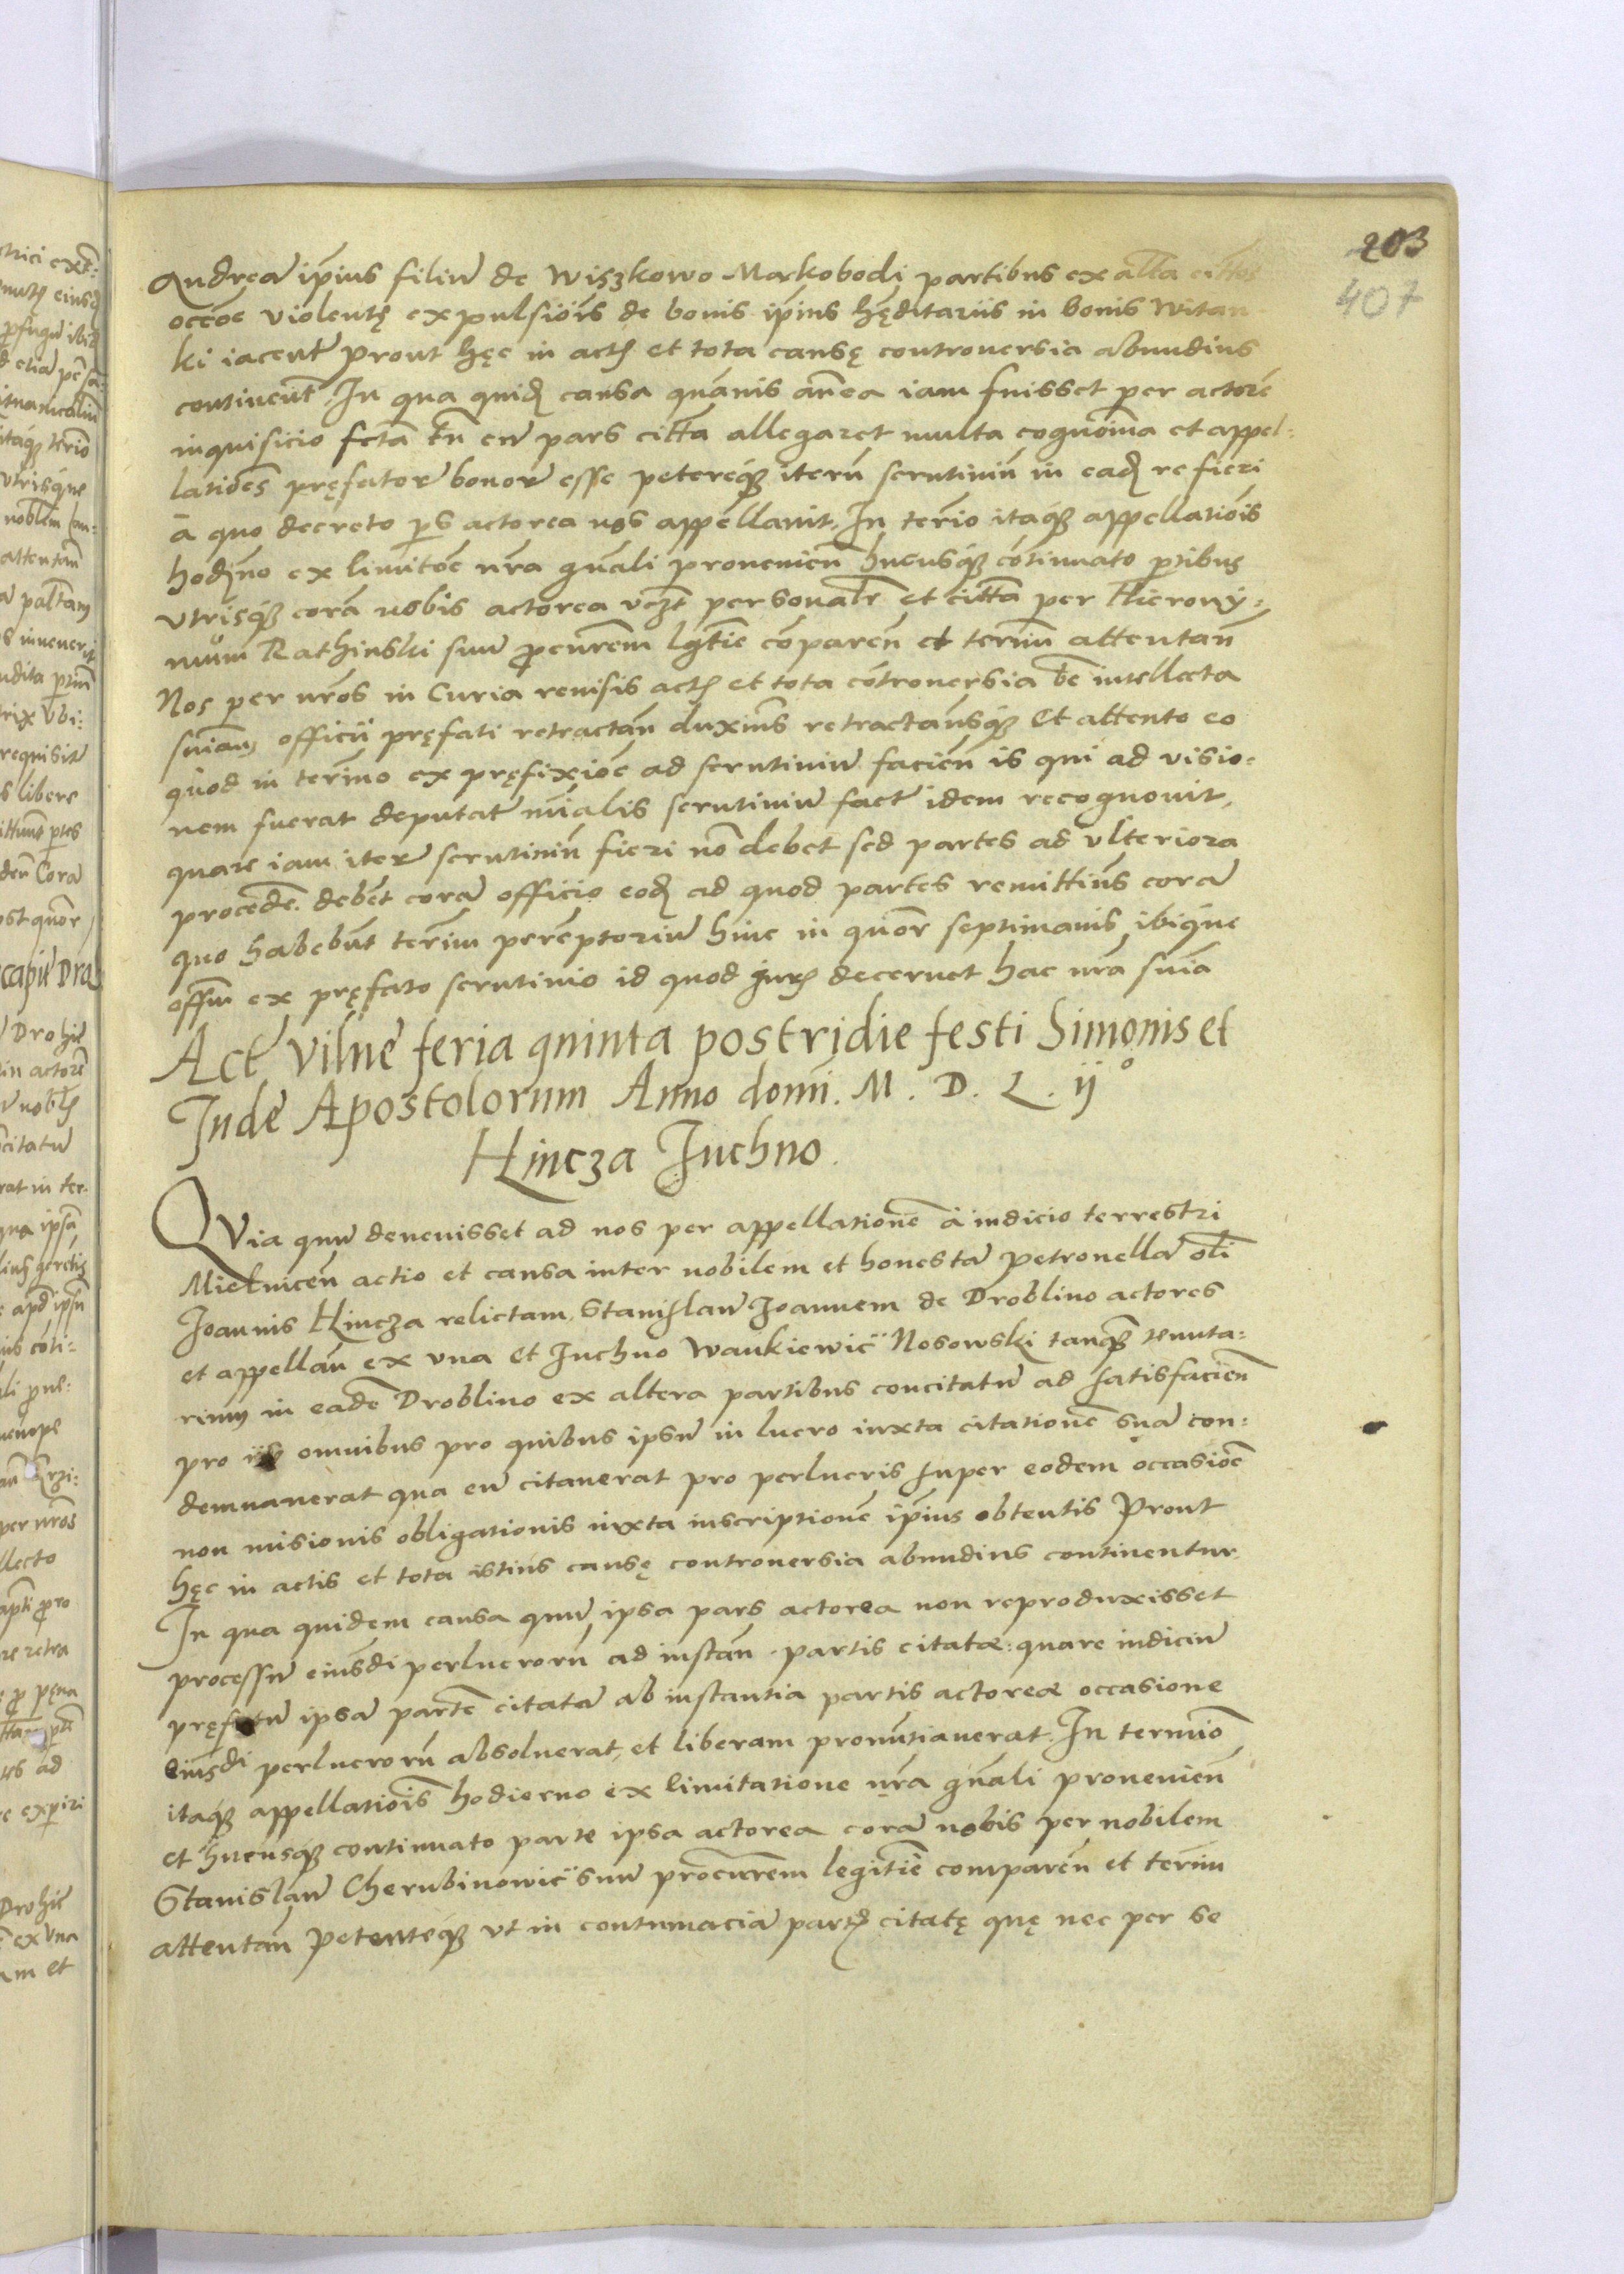 203
407
Andreā ip̄ius filiū de Wiszkowo Markobodi partibus ex alt̄a cittos
occōe violentę expulsiōis de bonis ip̄ius hęditariis in bonis Witan
ki iaceñt prout hęc in actis et tota causę controuersia abundius
continent̄. In qua quid̄ causa quāuis añtea iam fuisset per actorē
inquisicio fcta tn̄ eū pars citta allegaret multa cognōina et appel:
lationēs pręfator bonor esse petereq̨ iterū scrutiniū in ead̄ re fieri
a quo decreto ps actorea nos appellauit. In termīo itaq̨ appellatiōis
hodierno ex limitōe nr̄a gn̄ali prouenieñ hucusq̨ cōtinuato p̄tibus
vtrisq̨ corā nobis actorea vcz̄t personalr̄ et citta per Hierony:
mum Rathinski suū ꝓcurēm lgt̄ie cōpareñ et termīū attentañ
Nos per nr̄os in Curia reuisis actis et tota cōtrouersia bn̄e intellecta
sn̄iam officii pręfati retractañ duxim̄s retractamsq̨ Et attento eo
quod in termīo ex pręfixiōe ad scrutiniū facieñ is qui ad visio:
nem fuerat deputat̄ mīalis scrutiniū fact̄ idem recognouit,
quare iam iterū scrutiniū fieri nō debet sed partes ad vlteriora
procedēre debēt corā officio eod̄ ad quod partes remittim̄s corā
quo habebunt termīū peremptoriū hinc in quor̄ septimanis ibiq̨ue
offm̄ ex pręfato scrutinio id quod iuris decernet hac nr̄a sn̄ia
Act Vilnę feria quinta postridie festi Simonis et
Iude Apostolorum Anno domī. M. D. L. ij°
Hincza Iuchno.
QVia quū deuenisset ad nos per appellationē à iudicio terrestri
Mielniceñ actio et causa inter nobilem et honestā Petronellā olī
Joannis Hincza relictam Stanislaū Joannem de Droblino actores
et appellañ ex vna et Juchno Wankiewic̈ Nosowski tanq̨ tenuta:
rium in eadē Droblino ex altera partibus concitatū ad satisfacieñ
pro iis omnibus pro quibus ipsū in lucro iuxta citationē suā con:
demnauerat qua eū citauerat pro perlucris super eodem occasiōe
non misionis obligationis iuxta inscriptionē ip̄ius obtentis Prout
hęc in actis et tota istius causę controuersia abundius continentur.
In qua quidem causa quū ipsa pars actorea non reproduxisset
processū eiusdi perlucrorū ad instañ partis citatæ: quare iudiciū
pręfatū ipsā partē citatā ab instantia partis actoreæ occasione
eiusdi perlucrorū absoluerat, et liberam pronūtiauerat. In termiō
itaq̨ appellatiōis hodierno ex limitatione nr̄a gn̄ali prouenieñ
et hucusq̨ continuato parte ipsa actorea corā nobis per nobilem
Stanislaū Cherubinowic̈ suū procurēm legitīe compareñ et termīū
attentañ Petenteq̨ vt in contumaciā partis citatę quę nec per se